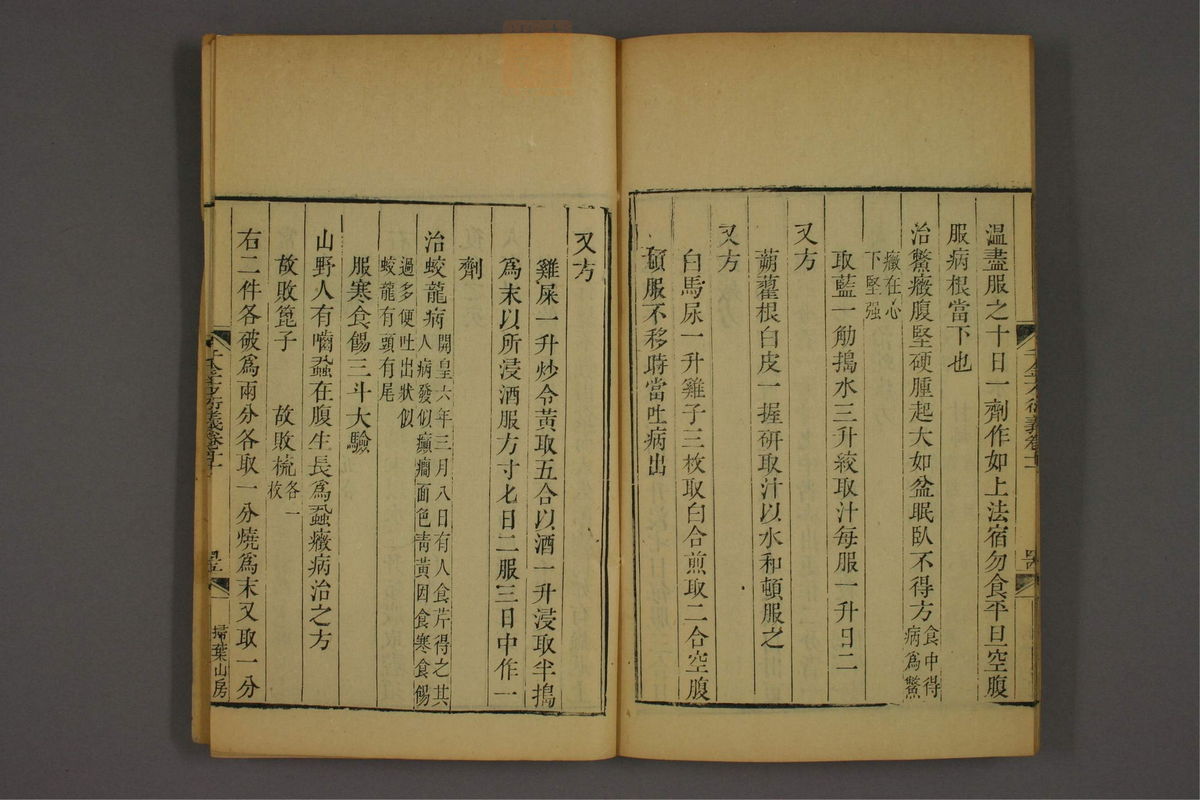 温盡服之十日一劑作如上法宿勿食平旦空腹
服病根當下也
治鱉癥腹堅硬腫起大如盆眠臥不得方食中得病爲鱉
癥在心下堅强
取藍一觔搗水三升絞取汁每服一升日二
又方
蒴藋根白皮一握硏取汁以水和頓服之
又方
白馬尿一升雞子三枚取白合煎取二合空腹
頓服不移時當吐病出
又方
雞屎一升炒令黃取五合以酒一升浸取半搗
爲末以所浸酒服方寸匕日二服三日中作一
劑
治蛟龍病開皇六年三月八日有人食芹得之其人病發似癲癎面色靑黃因食寒食餳
過多便吐出狀似蛟龍有頭有尾
服寒食餳三斗大驗
山野人有嚙蝨在腹生長爲蝨癥病治之方
故敗篦子　故敗梳各一枚
右二件各破爲兩分各取一分燒爲末又取一分
千金方衍義卷十一
掃葉山房